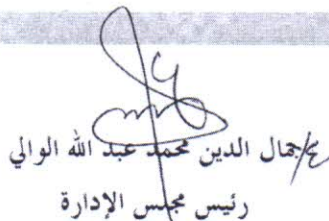 ع/جمال الدين محمد عبد الله الوالي
رئيس مجلس الإدارة